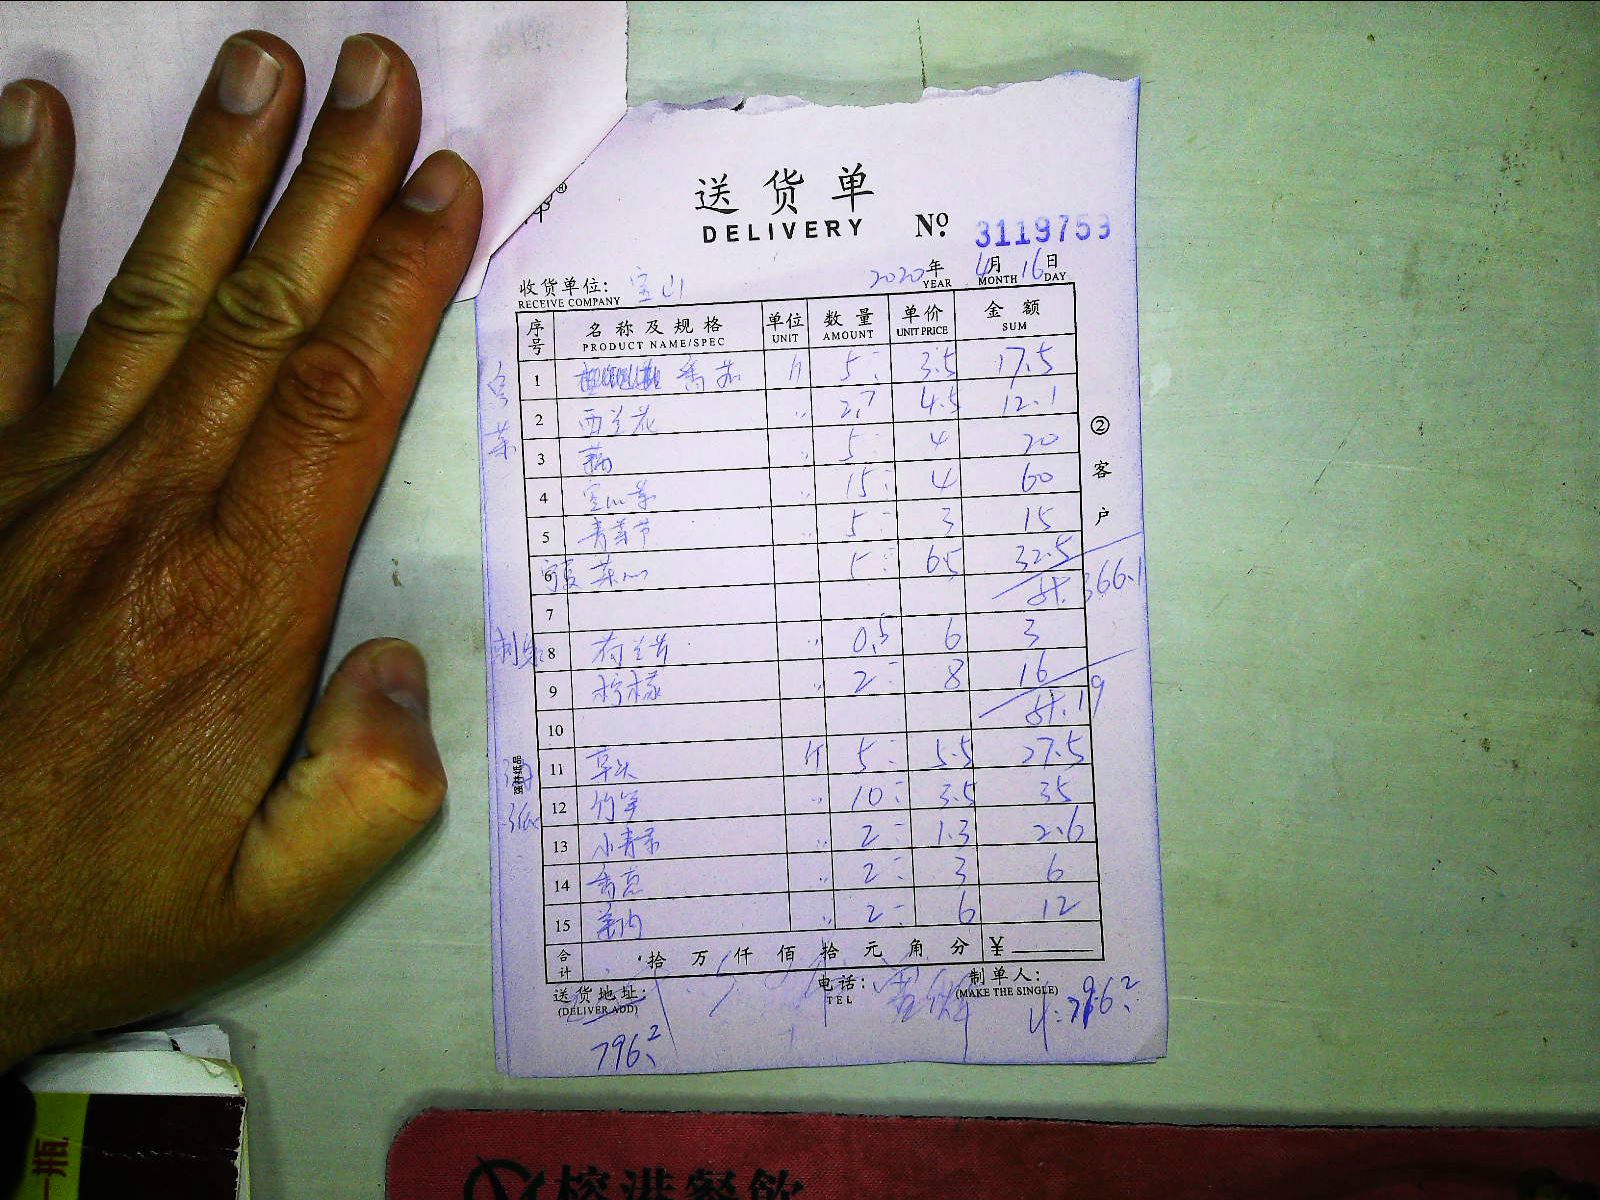 送货单
DELIVERY № 3119759
收货单位: 宝山 2020年 4月 16日
RECEIVE COMPANY YEAR MONTH DAY
序号 名称及规格 单位 数量 单价 金额
PRODUCT NAME/SPEC UNIT AMOUNT UNIT PRICE SUM
1 香菇 斤 5 3.5 17.5
2 西兰花 〃 2.7 4.5 12.1
3 藕 〃 5 4 20
4 〃 15 4 60
5 〃 5 3 15
6 宁夏菜心 5 6.5 32.5
7 计.366.1
8 荷兰芹 〃 0.5 6 3
9 柠檬 〃 2 8 16
10 计.19
11 草头 斤 5 5.5 27.5
12 竹笋 〃 10 3.5 35
13 小青菜 〃 2 1.3 2.6
14 香葱 〃 2 3 6
15 〃 2 6 12
合计 拾万仟佰拾元角分 ¥
送货地址: 电话: 制单人:
(DELIVER ADD) TEL (MAKE THE SINGLE)
796.2 计:796.2
②客户
强林纸品
一瓶
榕港餐飲